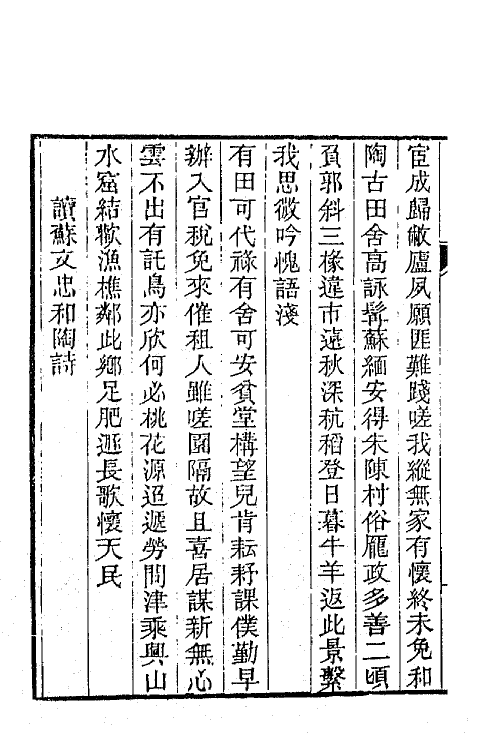 宦成歸敝廬夙願匪難踐嗟我縱無家有懷終未免和
陶古田舍高詠髯蘇緬安得朱陳村俗厖政多善二頃
負郭斜三椽違市遠秋深秔稻登日暮牛羊返此景繫
我思微吟愧語淺
有田可代祿有舍可安貧堂構望兒肯耘耔課僕勤早
辦入官稅免來催租人雖嗟園隔故且喜居謀新無心
雲不出有託鳥亦欣何必桃花源迢遞勞問津乘興山
水窟結歡漁樵鄰此鄉足肥遯長歌懷天民
讀蘇文忠和陶詩